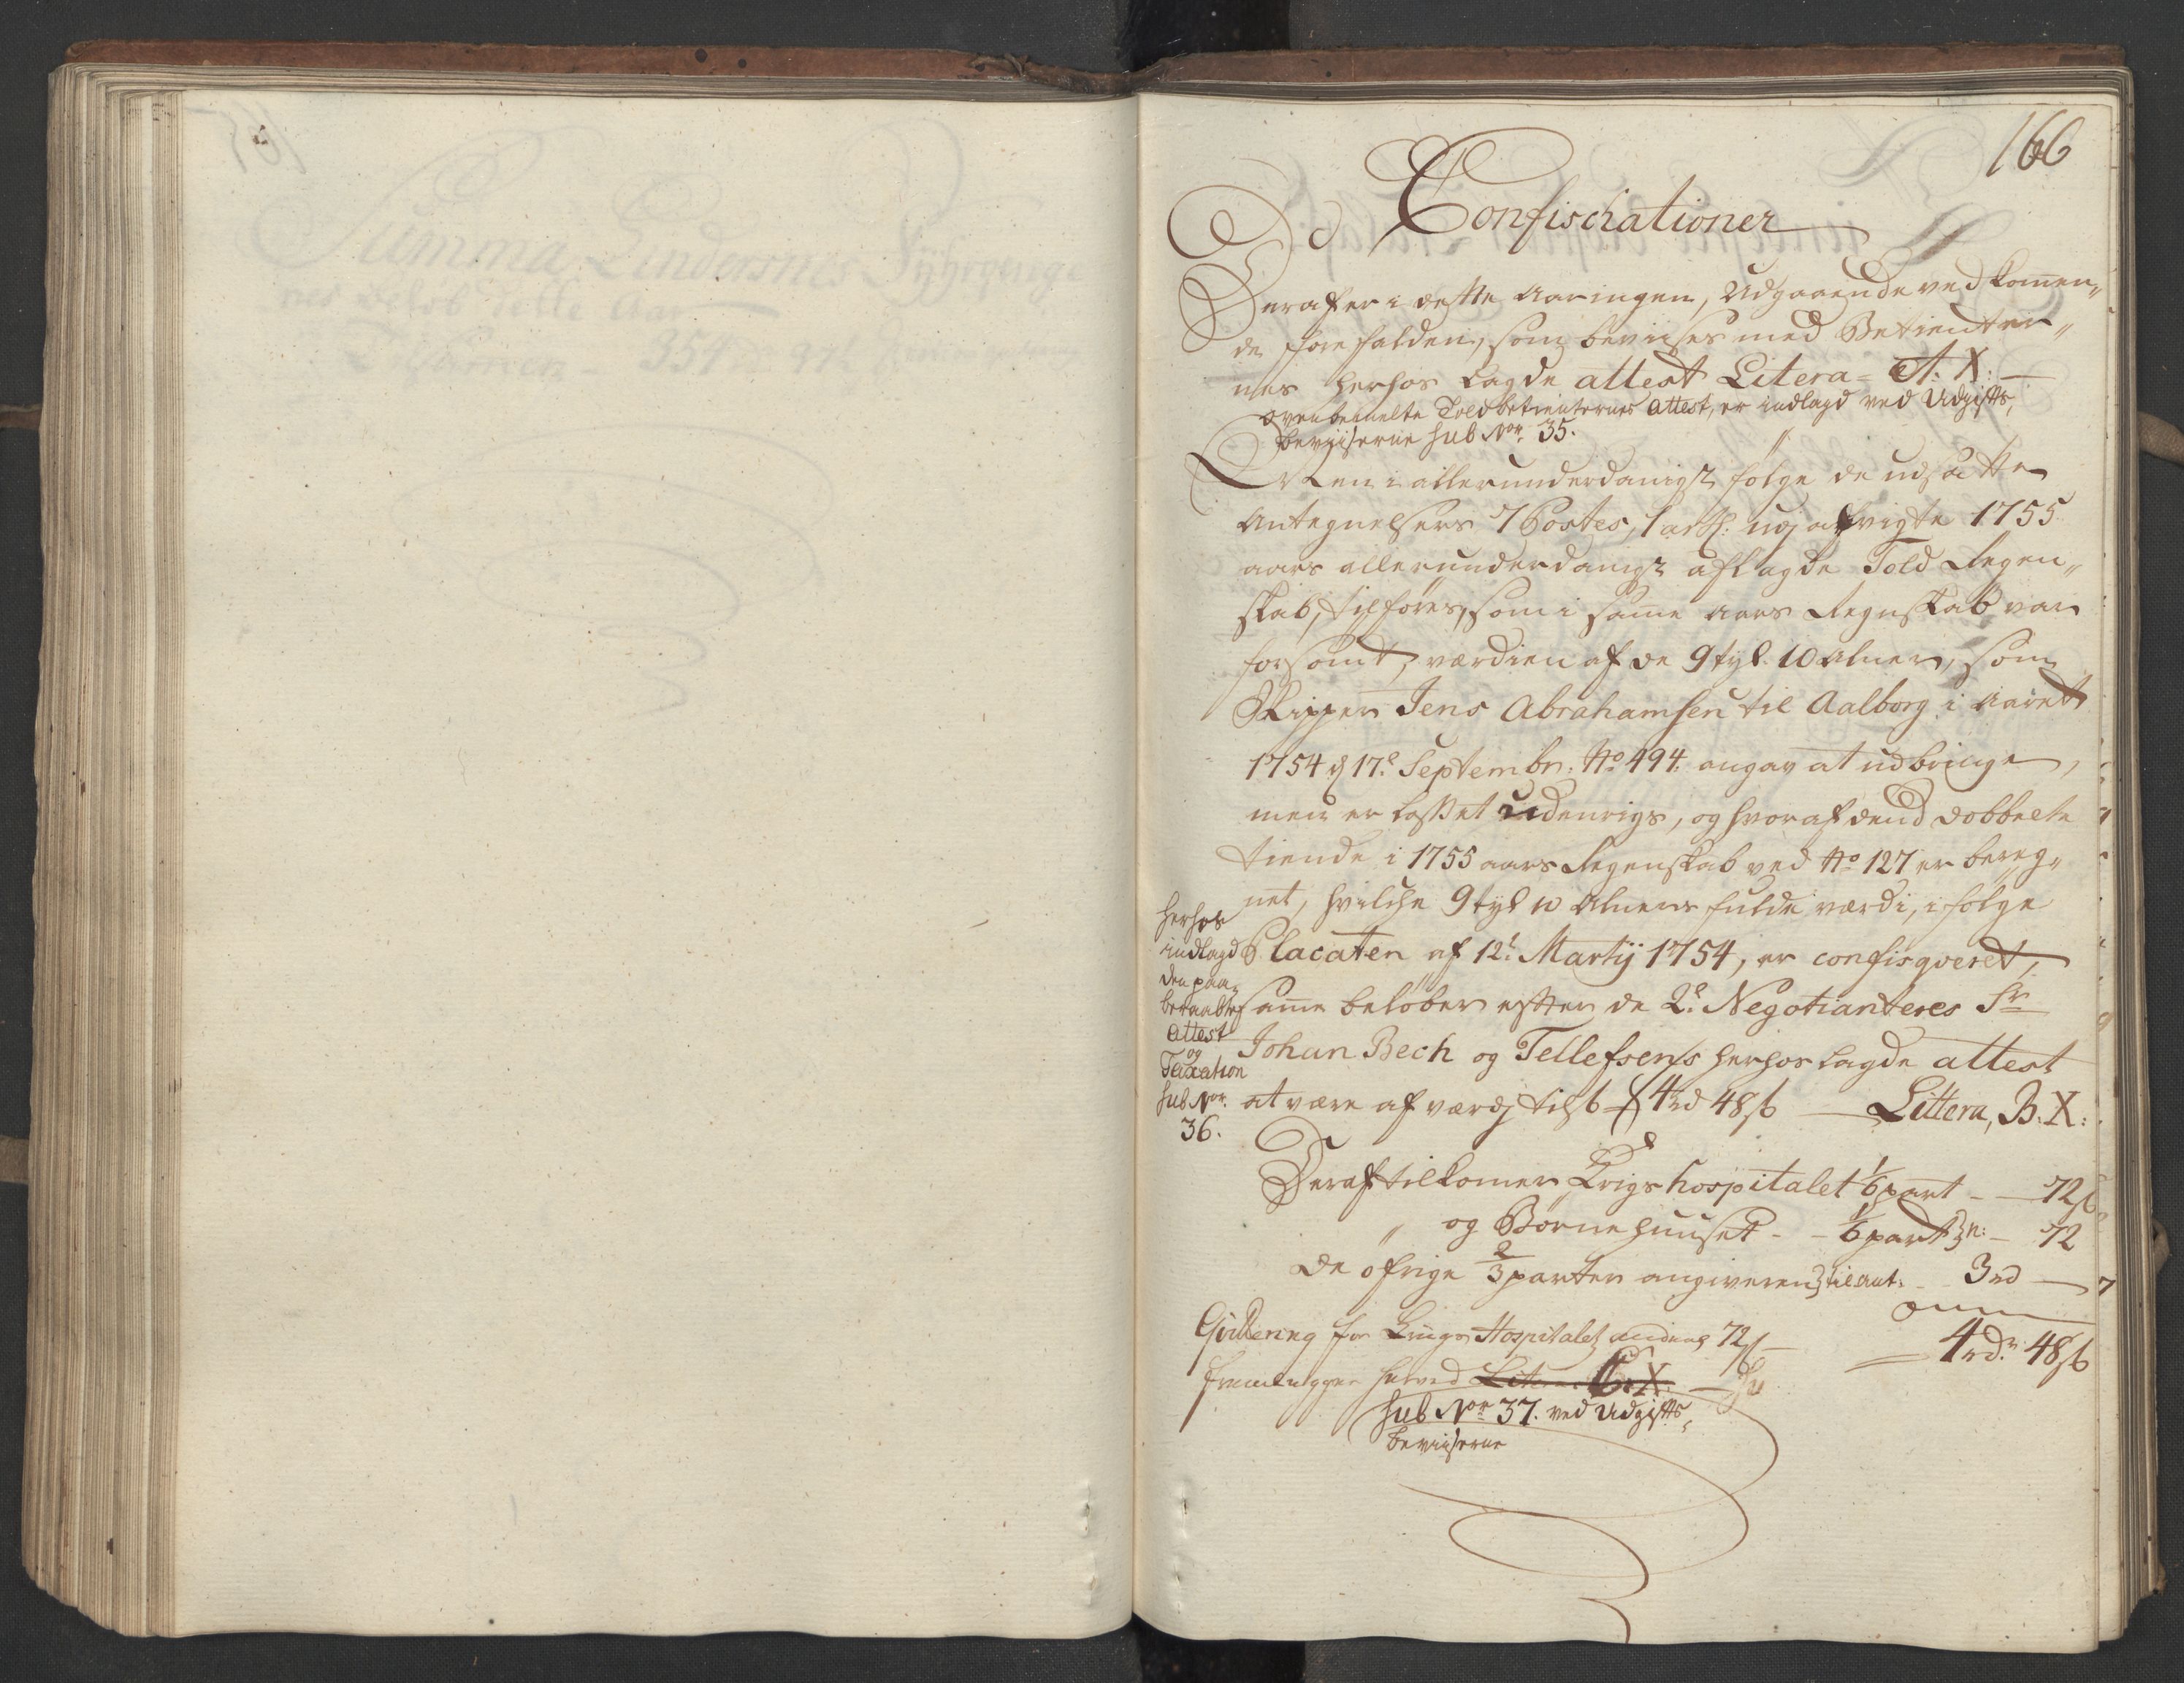 166
Confischationer
Deraf er i dette Aar ingen, Udgaaende ved komen„
de forefalden, som bevises med Betienter„
nes herhos lagde attest Litera= A. X:
ovenbemelte Toldbetienternes Attest, er indlagd ved Udgifts„
beviiserne sub Nor. 35.
Men i allerunderdanigst følge de udsatte
Antegnelsers 7 Postes, 1 art: udj afvigte 1755
aars allerunderdanigst aflagde Told Regen„
skab, tilføres, som i same aars Regnskab var
forsømt, værdien af de 9 tyl. 10 Alner, som
Skipper Jens Abrahamsen til Aalborg i Aarett
1754 d 17e Septembr: No 494. angav at udbringe,
men er losset udenrigs, og hvoraf dend dobbelte
tiende i 1755 aars Regenskab ved No 127 er bereg„
net, hvilche 9 tyl 10 Alners fulde værdi, i følge
Placaten af 12t Martij 1754, er confisqveret,
same beløber efter de 2e Negotianteres Sr
Johan Bech og Tellefsens herhos lagde attest
at være af værdj til 4 rd 48 ß Littera, B. X:
herhos
indlagd
den paa„
beraabte
Attest
og
Taxation
sub Nor.
36.
Deraf tilkomer Krigs hospitalet 1/6 part - 72 ß
" og Børnehuuset - 1/6 part - 72
de øfrige 2/3 parter angiveren - 3 rd
4 rd. 48 ß
Qvittering for Krigs Hospitalets andeel 72 ß
fremlegges herved Litera C. X:
sub Nor 37. ved Udgifts„
beviiserne
Summa Lindersnes Fyhrpenge
nes beløb dette Aar